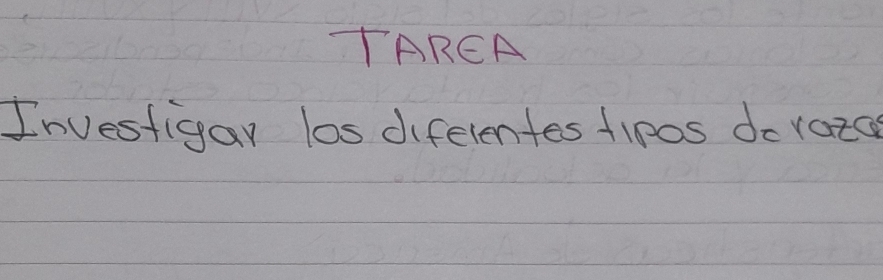 TAREA
Investigar los diferentes tipos de razas